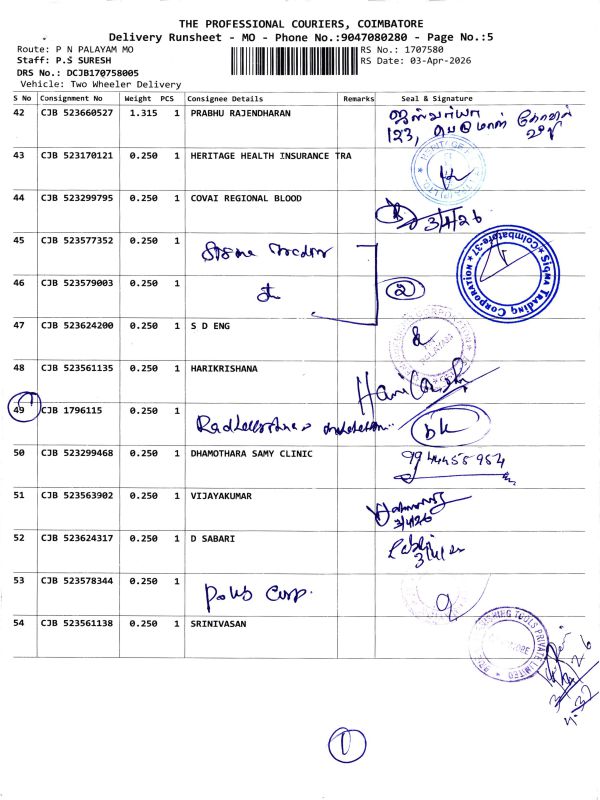 THE PROFESSIONAL COURIERS, COIMBATORE
Delivery Runsheet - MO - Phone No.:9047080280 - Page No.:5
Route: P N PALAYAM MO RS No.: 1707580
Staff: P.S SURESH RS Date: 03-Apr-2026
DRS No.: DCJB170758005
Vehicle: Two Wheeler Delivery
S No Consignment No Weight PCS Consignee Details Remarks Seal & Signature
42 CJB 523660527 1.315 1 PRABHU RAJENDHARAN
123,
43 CJB 523170121 0.250 1 HERITAGE HEALTH INSURANCE TRA
44 CJB 523299795 0.250 1 COVAI REGIONAL BLOOD 3/4/26
45 CJB 523577352 0.250 1
SIGMA TRADING CORPORATION Coimbatore-37
46 CJB 523579003 0.250 1 2
47 CJB 523624200 0.250 1 S D ENG
48 CJB 523561135 0.250 1 HARIKRISHANA
49 CJB 1796115 0.250 1
50 CJB 523299468 0.250 1 DHAMOTHARA SAMY CLINIC 9944455984
51 CJB 523563902 0.250 1 VIJAYAKUMAR
3/4/26
52 CJB 523624317 0.250 1 D SABARI
53 CJB 523578344 0.250 1
Corp.
54 CJB 523561138 0.250 1 SRINIVASAN
TOOLS PRIVATE LIMITED
1